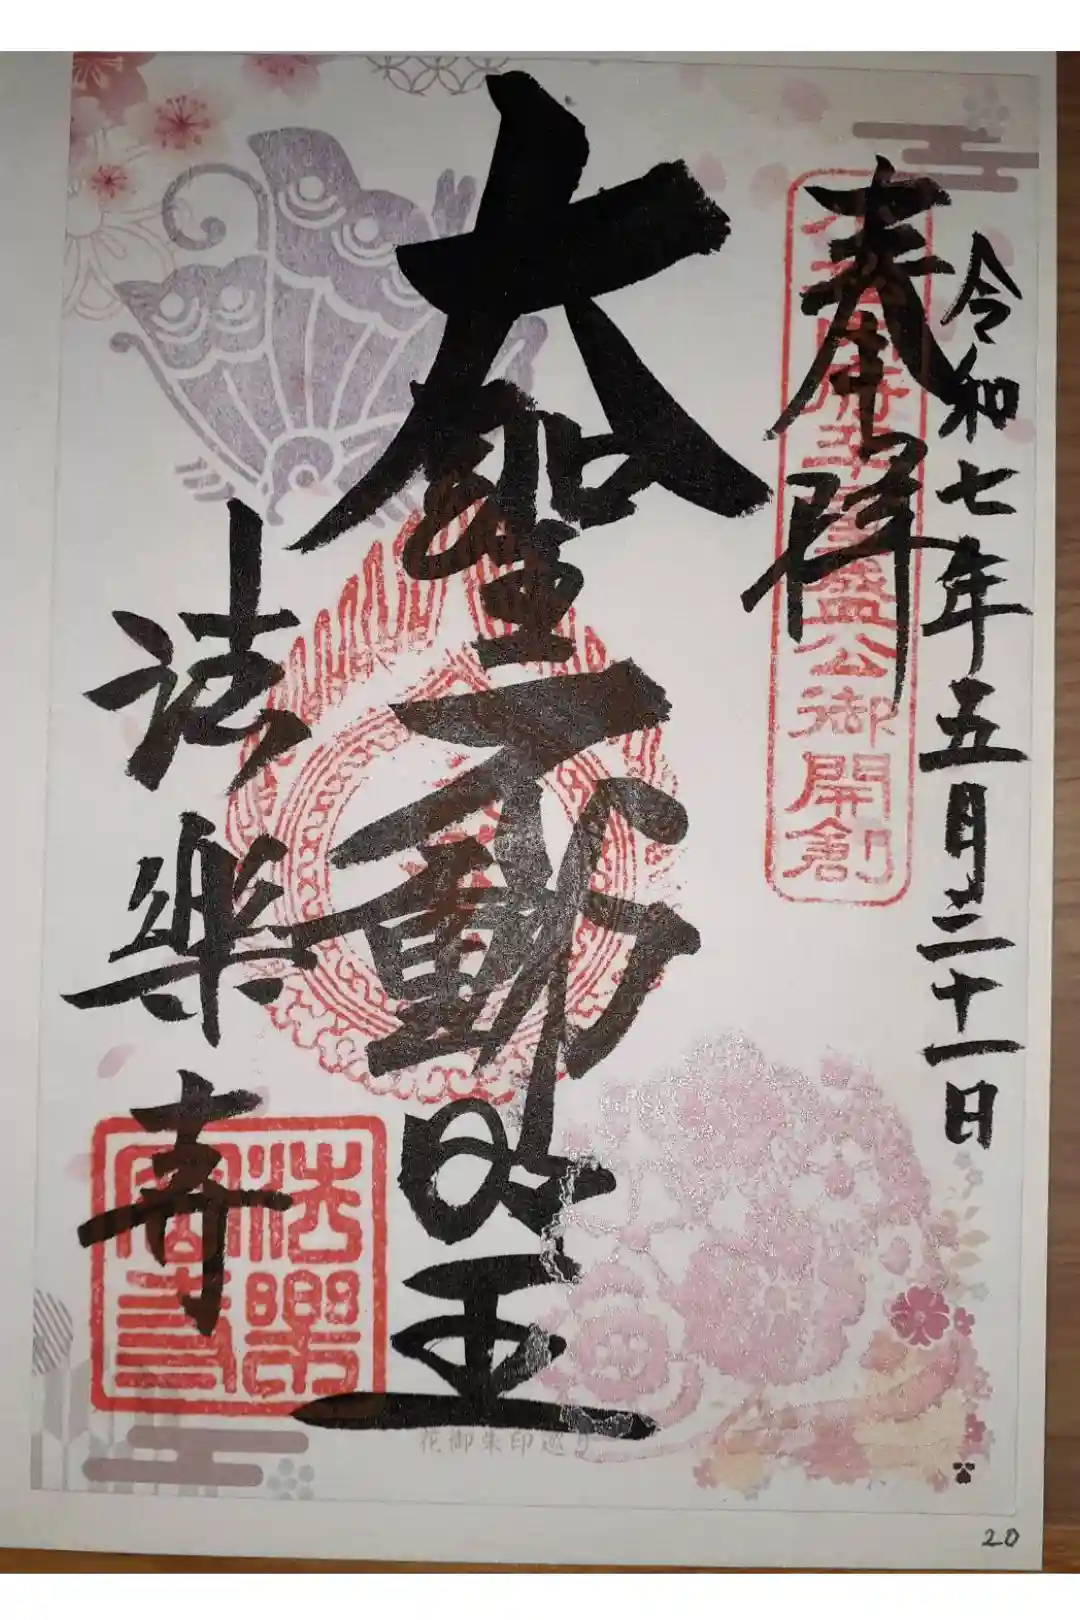 令和七年五月二十一日
奉拝
大聖不動明王
法楽寺
法樂寺
花御朱印巡り
20